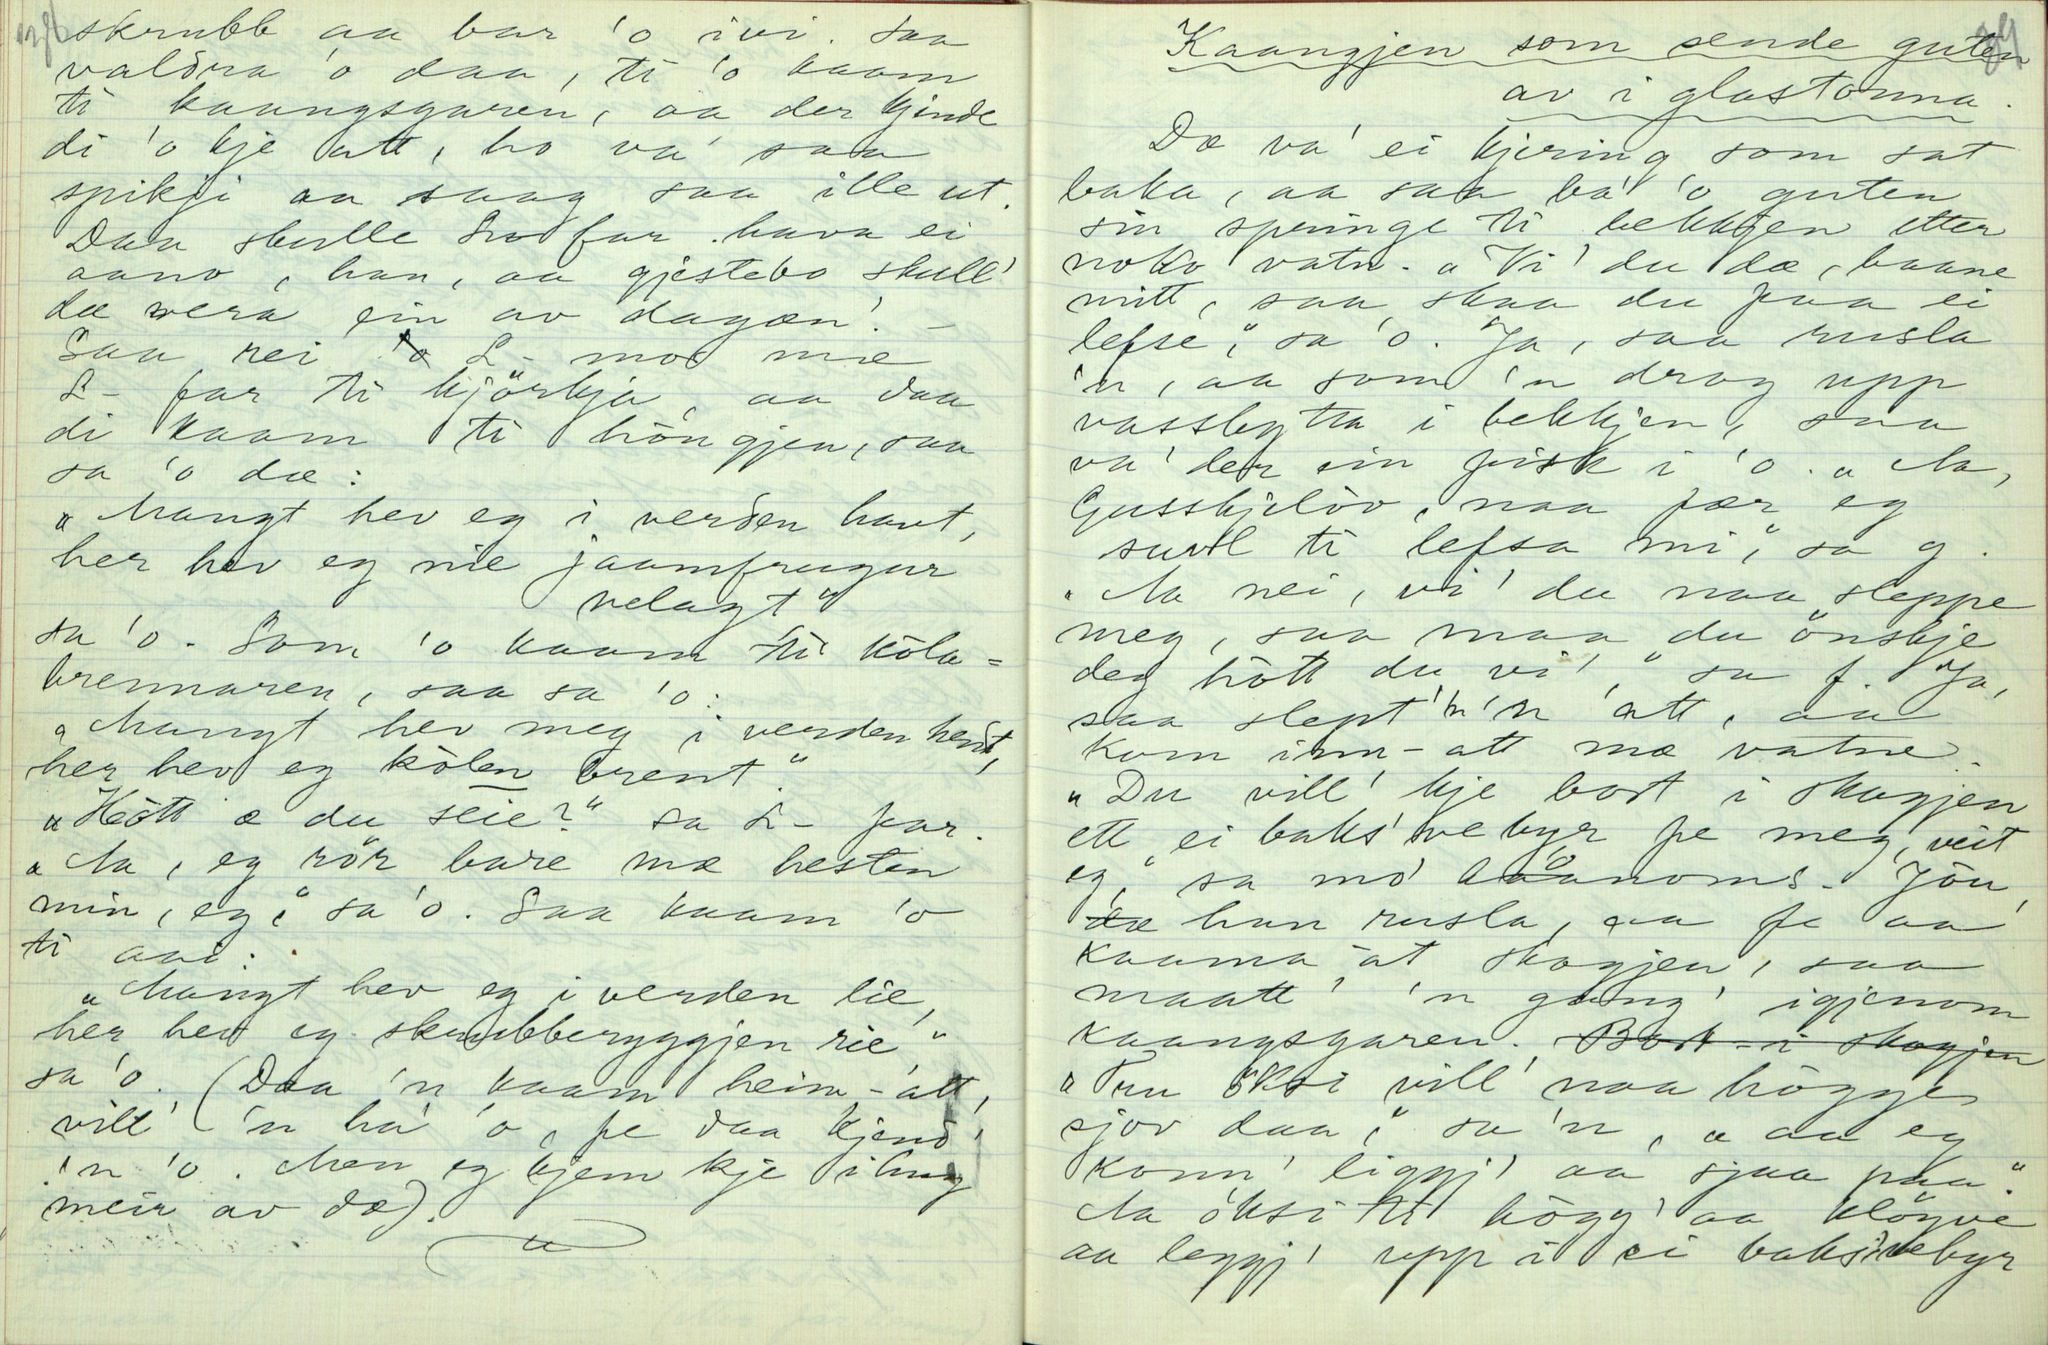 skrubb aa bar 'o ivi. Saa
valdra 'o daa, ti 'o kaam
ti kaangsgaren, aa der kjinde
di 'o kje att, ho va' saa
spikji aa saag saa ille ut.
Daa skulle Snofar hava ei
aano, han, aa gjestebo skull'
dæ vera ein av dagæn'. –
Saa rei S- mor mæ
S- far ti kjörkja, aa daa
di kaam ti höngjen, saa
sa 'o dæ:
„Mangt hev eg i verden havt,
her hev eg nie jaamfrugur
velagt"
sa 'o. Som 'o kaam ti köla-
brennaren, saa sa 'o:
„Mangt hev meg i verden hendt,
her hev eg kölen brent."
„Hött æ du seie?" sa S- far.
„Aa, eg rör bare mæ hesten
min, eg," sa 'o. Saa kaam 'o
ti aai:
„Mangt hev eg i verden lie,
her hev eg skrubberyggjen rie"
sa 'o. (Daa 'n kaam heim-att,
vill' 'n ha' 'o, fe daa kjend'
'n 'o. Men eg kjem kje ihug
meir av dæ).
Kaangjen som sende guten
av i glastonna.
Dæ va' ei kjering som sat
baka, aa saa ba' 'o guten
sin springe ti bekkjen etter
noko vatn. „Vi' du dæ, baane
mitt, saa skaa du faa ei
lefse," sa 'o. Ja, saa rusla
'n, aa som 'n drog upp
vassbytta i bekkjen, saa
va' der ein fisk i 'o. „Aa,
Gusskjelöv, naa fær eg
suvl ti lefsa mi," sa g.
„Aa nei, vi' du naa sleppe
meg, saa maa du önskje
deg hött du vi'," sa f. Ja,
saa slept' 'n 'n att, aa
kom inn-att mæ vatne.
„Du vill' kje bort i skogjen
ett ei baks'vebyr fe meg, veit
eg," sa mo' hanoms. Jöu,
han rusla, aa fe aa
kaama åt skogjen, saa
maatt' 'n gang' igjenom
kaangsgaren. Bort i skogjen
„Fru öksi vill' naa högge
sjov daa," sa 'n, „aa eg
konn' liggj' aa sjaa paa."
Aa öksi ti högg' aa klöyve
aa leggj' upp i ei baks'vebyr